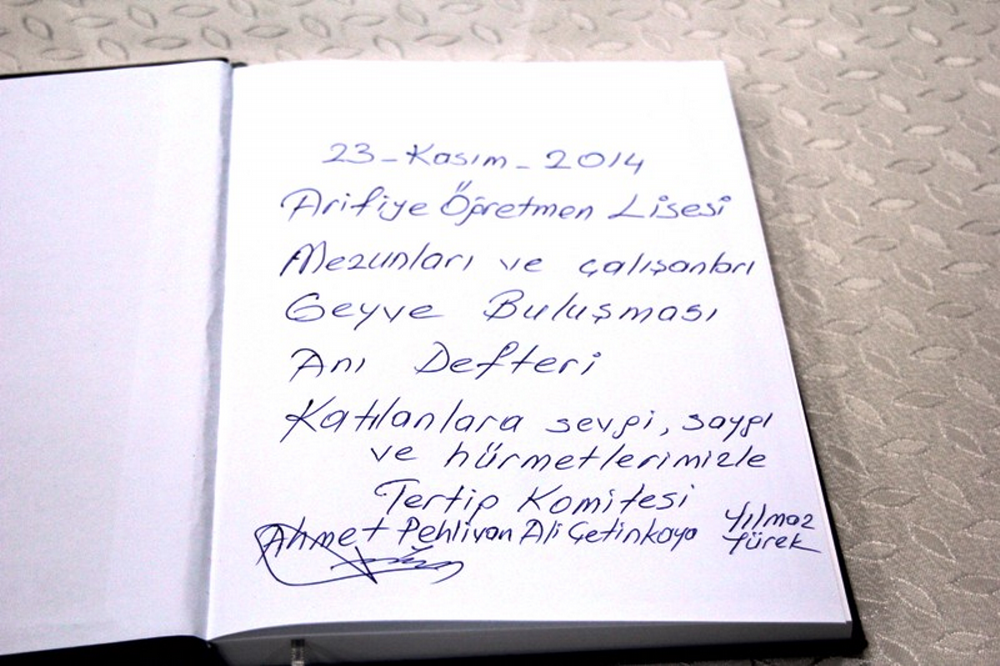 23-Kasım-2014
Arifiye Öğretmen Lisesi
Mezunları ve çalışanları
Geyve Buluşması
Anı Defteri
Katılanlara sevgi, saygı
ve hürmetlerimizle
Tertip Komitesi
Ahmet Pehlivan Ali Çetinkaya Yılmaz
Yürek